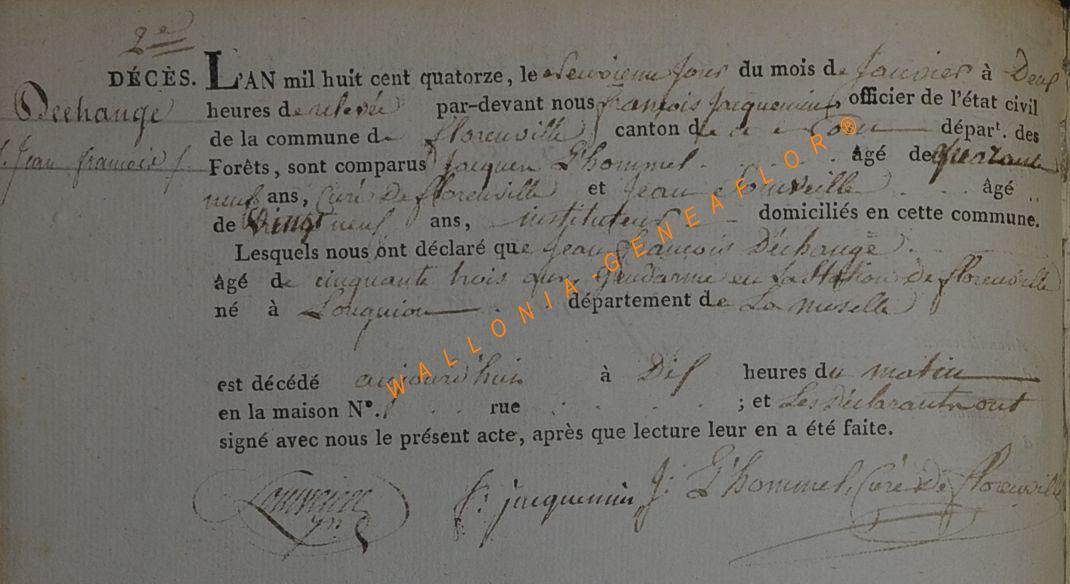 2e
DÉCÈS. L'AN mil huit cent quatorze, le deuxieme Jour du mois de Janvier à Deux
Dechange
heures de relevée par-devant nous françois Jacquemin, officier de l'état civil
de la commune de florenville canton de départ. des
Jean françois
Forêts, sont comparus Jacques L'hommel âgé de quarante
neuf ans, Curé De florenville et Jean âgé
de Vingt neuf ans, instituteur domiciliés en cette commune.
Lesquels nous ont déclaré que Jean françois Déchange
âgé de cinquante trois ans Gendarme en La Station De florenville
né à Longuion département de La moselle
est décédé aujourd'hui à Dix heures du matin
en la maison N°. rue ; et Les Déclarants ont
signé avec nous le présent acte, après que lecture leur en a été faite.
f: jacquemin J: L'hommel, Curé De florenville
WALLONIA-GENEAFLOR ®